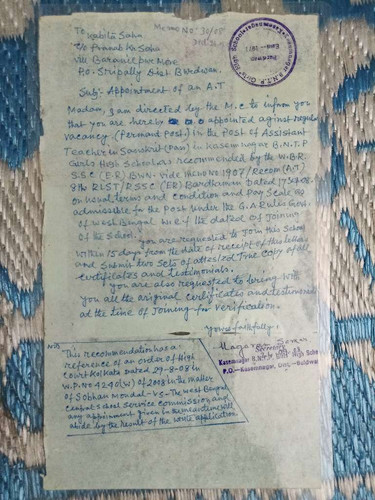 To
Kabita Saha
C/o Pranab Ka Saha
Memo No: 30/08
Vill Baramitpur More
P.O- Sripally Dist Burdwan.
Sub:- Appointment of an A.T
Madam, I am directed by the M.C to inform you
that you are hereby appointed against regular
vacancy (Permanent Post) in the Post of Assistant
Teacher in Sanskrit (Pass) in Kasemnagar B.N.T.P
Girls High School as recommended by the W.B.R.
S.S.C (E.R) BWN- Vide Memo No 1907/Recom(A.T)
8th RLST/RSSC (ER) Bardhaman Dated
on usual terms and Condition and Pay Scale as
admissible for the Post under the G.A Rules Gov.
of West Bengal W.e.f the date of Joining
of the School.
you are requested to Join this School
within 15 days from the date of receipt of this letter
and submit two sets of attested True Copy of all
Certificates and Testimonials.
you are also requested to bring with
you all the original Certificates and testimonials
at the time of Joining for Verification.
Yours faithfully,
Secretary
Kasemnagar B.N.T.P. Girls' High School
P.O.—Kasemnagar, Dist.—Burdwan
N.B
This recommendation has a
reference of an order of High
Court Kolkata Dated 29-8-08 in
W.P. No 4240(W) of 2008 in the matter
of Sobhan Mondal -Vs- The West Bengal
Central School Service Commission and
any appointment given in the meantime will
abide by the result of the writ application